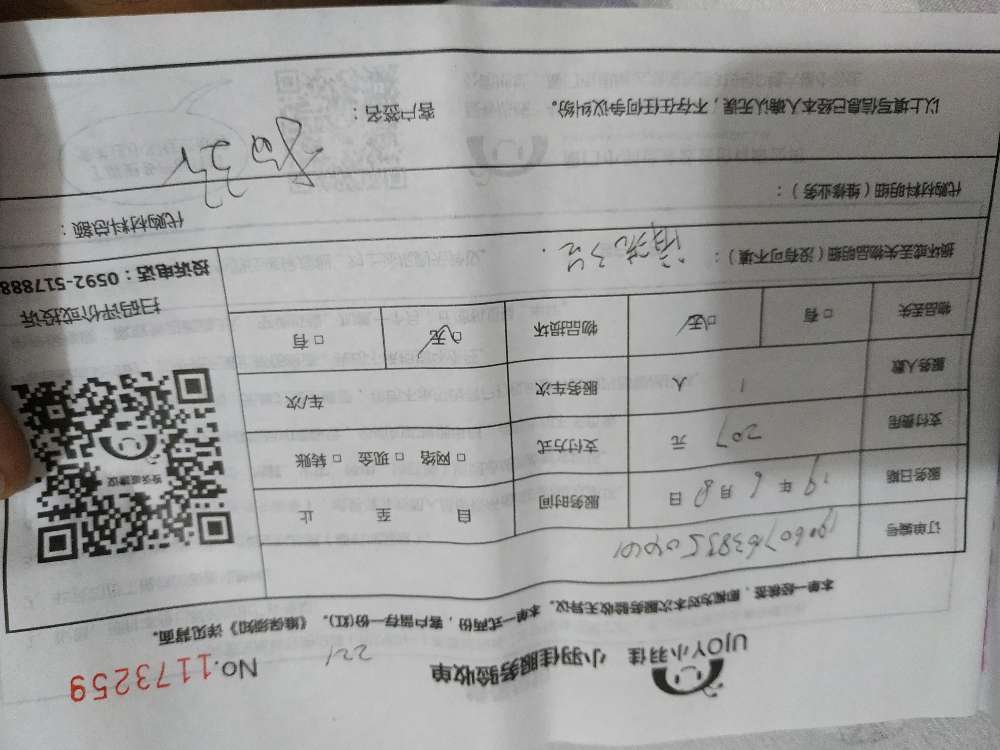 UJOY小羽佳 小羽佳服务验收单 No.1173259
221
本单一经核签，即视为对本次服务验收无异议。本单一式两份，客户留存一份(红)。《维保须知》详见背面。
订单编号
服务日期 19年6月8日 服务时间 自 至 止
支付费用 207元 支付方式 □网络 □现金 □转账
服务人数 1人 服务车次 车/次
物品丢失 □有 □无 物品损坏 □无 □有
损坏或丢失物品明细（没有可不填）：
代购材料明细（维修业务）： 代购材料总额：
以上填写信息已经本人确认无误，不存在任何争议纠纷。 客户签名：
意见或建议
扫码评价或投诉
投诉电话：0592-517888